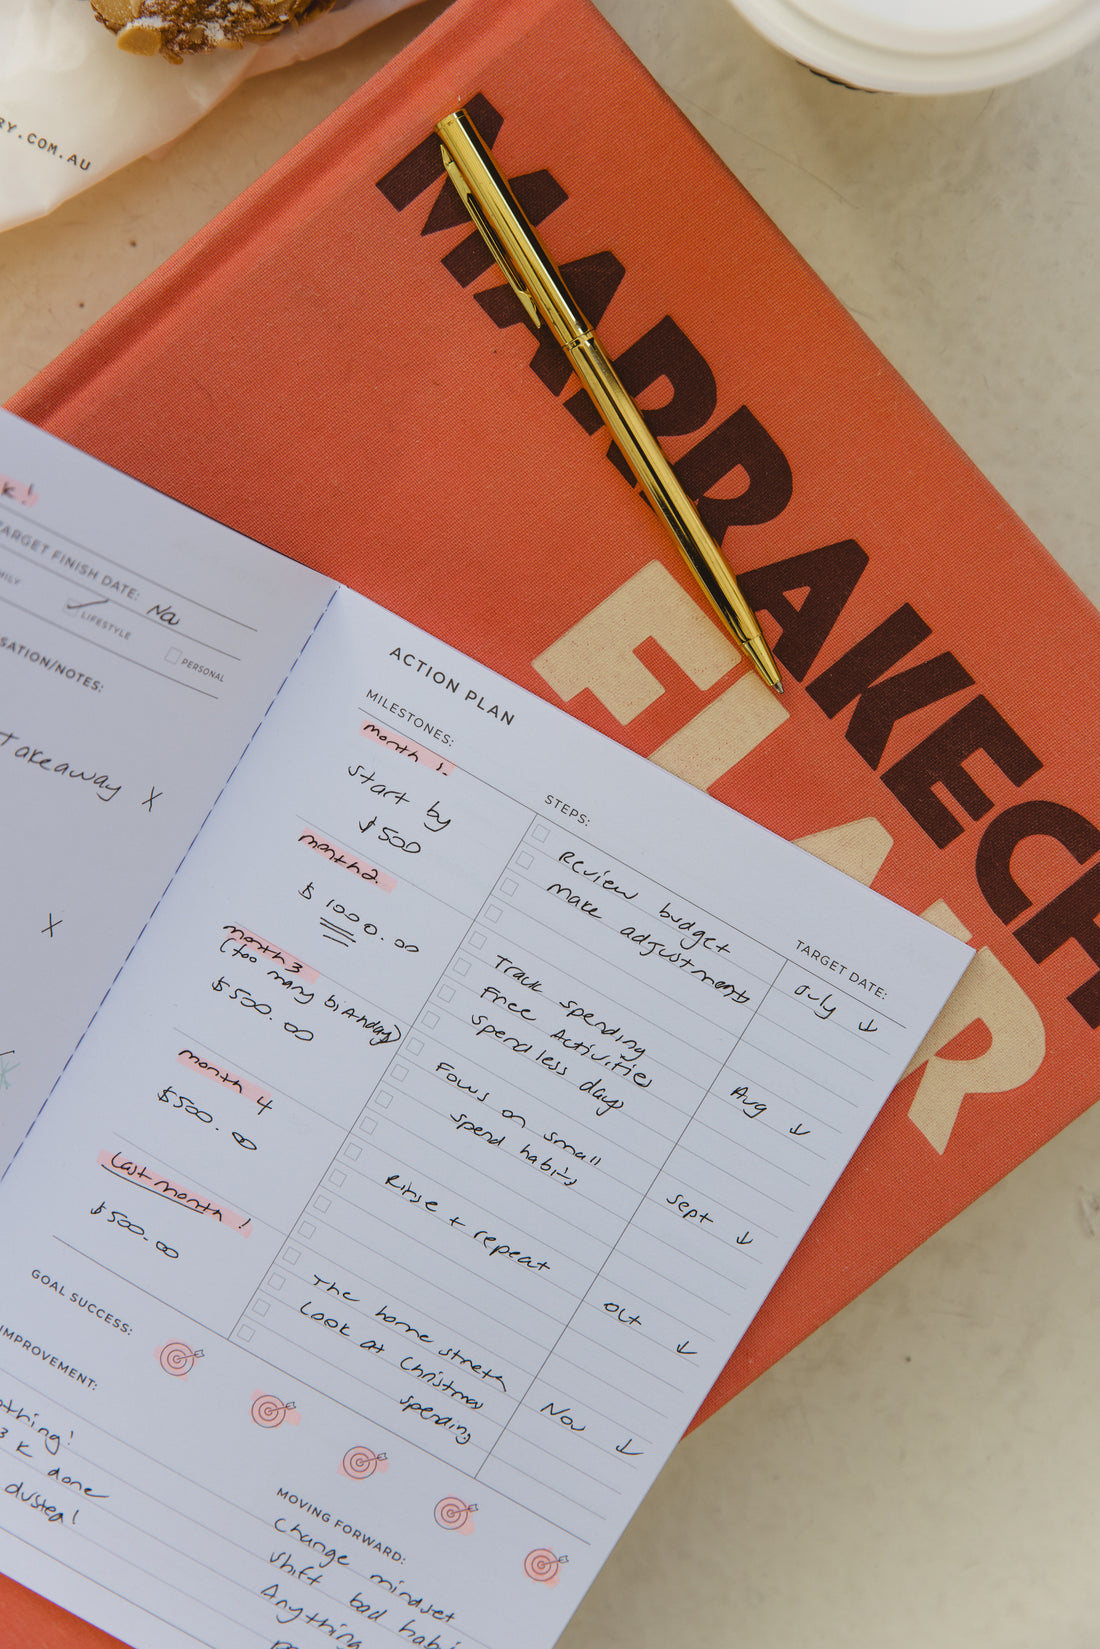 RY.COM.AU
MARRAKECH
FLAIR
k!
TARGET FINISH DATE: Nov
MILY
LIFESTYLE
PERSONAL
SATION/NOTES:
Takeaway X
X
K
ACTION PLAN
MILESTONES:
month 1.
Start by
$500
month 2.
$ 1000.00
month 3
(too many birthdays)
$500.00
month 4
$500.00
Last month!
$500.00
STEPS:
Review budget
make adjustments
Track spending
Free Activities
Spend less days
Focus on small
spend habits
Rinse + repeat
The home stretch
Look at Christmas
spending
TARGET DATE:
July ↓
Aug ↓
Sept ↓
Oct ↓
Nov ↓
GOAL SUCCESS:
IMPROVEMENT:
othing!
3 K done
dusted!
MOVING FORWARD:
Change mindset
shift bad habi
Anything